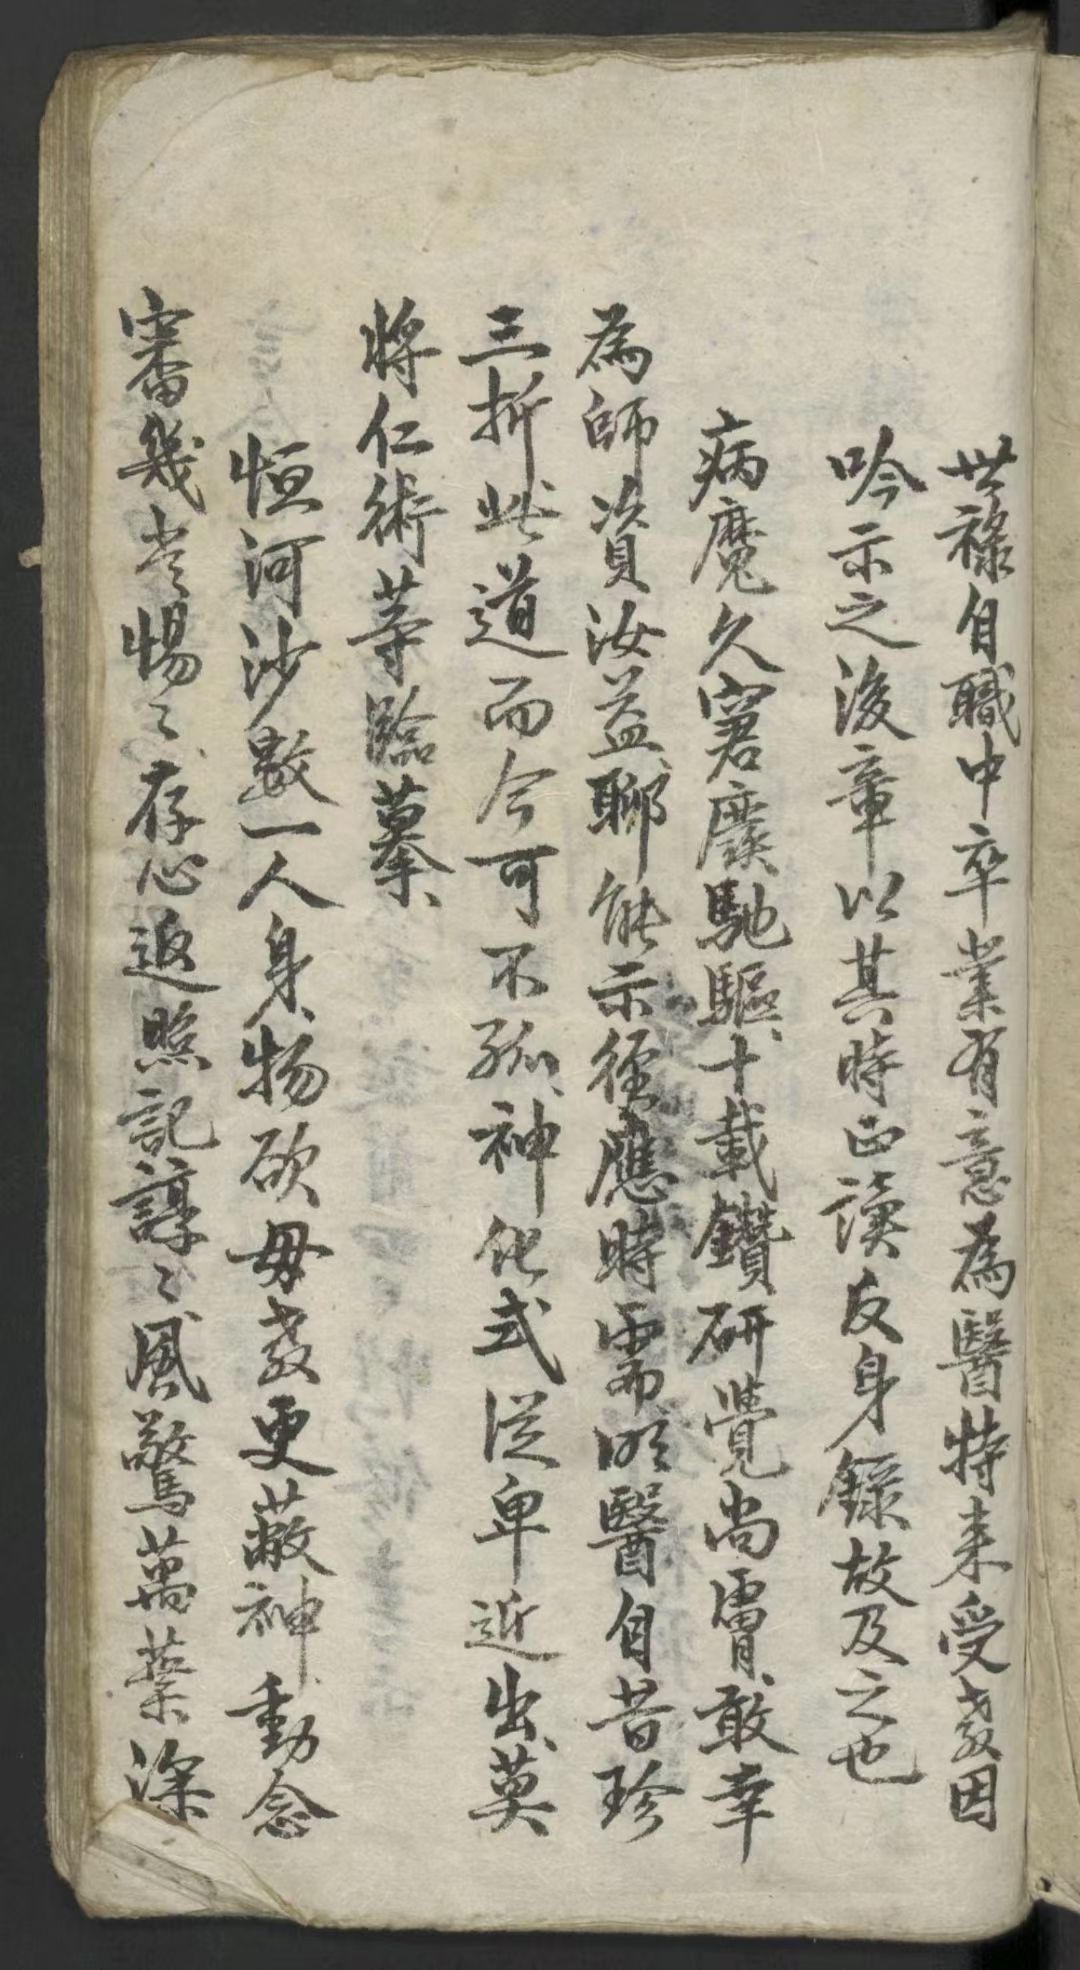 世祿自職中卒業有意為醫特来受教因
吟示之後章以其時正讀反身錄故及之也
病魔久窘廢馳驅十載鑽研覺尚膚敢幸
為師資汝益聊能示徑應時需明醫自昔珍
三折此道而今可不孤神化式從卑近出莫
將仁術等臨摹
恒河沙數一人身物欲毋教更蔽神動念
審幾常惕〻存心返照記諄〻風驚萬葉深